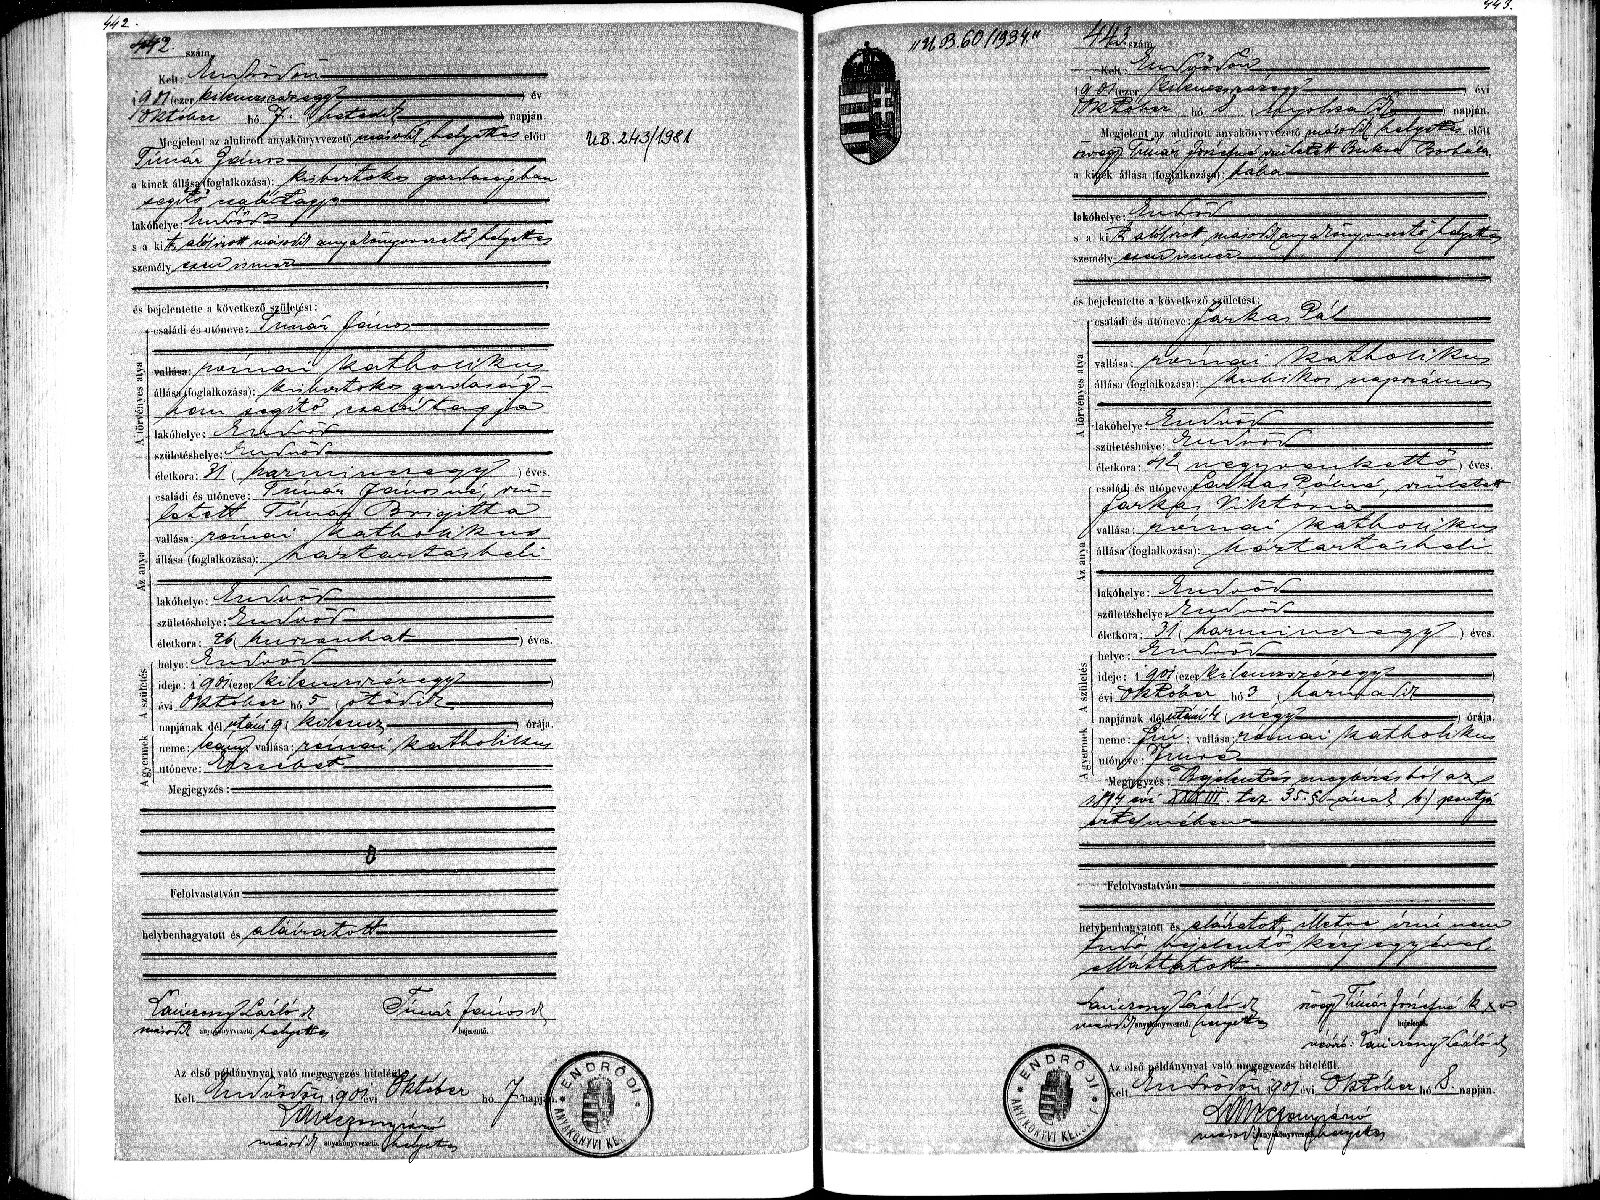 442.
442 szám.
Kelt: Endrődön
1901 (ezer kilenczszázegy) év
Október hó 7. (hetedik) napján.
Megjelent az alulirott anyakönyvvezető második helyettes előtt
Tímár János
a kinek állása (foglalkozása): kisbirtokos gazdaságban
segítő családtagja
lakóhelye: Endrőd
s a kit alulirott második anyakönyvvezető helyettes
személyesen ismer
és bejelentette a következő születést:
A törvényes atya
családi és utóneve: Tímár János
vallása: római katholikus
állása (foglalkozása): kisbirtokos gazdaság-
ban segítő családtagja
lakóhelye: Endrőd
születéshelye: Endrőd
életkora: 31 (harminczegy) éves.
Az anya
családi és utóneve: Tímár Jánosné, szü-
letett Tímár Brigitta
vallása: római katholikus
állása (foglalkozása): háztartásbeli
lakóhelye: Endrőd
születéshelye: Endrőd
életkora: 26 (huszonhat) éves.
A születés
helye: Endrőd
ideje: 1901 (ezer kilenczszázegy)
évi Október hó 5 (ötödik)
napjának dél utáni 9 (kilencz) órája.
A gyermek
neme: leány; vallása: római katholikus
utóneve: Erzsébet
Megjegyzés:
Felolvastatván
helybenhagyatott és aláíratott
Lanczonyi László sk Tímár János sk
második anyakönyvvezető helyettes bejelentő.
Az első példánynyal való megegyezés hiteléül:
Kelt Endrődön 1901 évi Október hó 7 napján.
második anyakönyvvezető helyettes
ENDRŐDI
ANYAKÖNYVI KE
U.B. 243/1981
443.
"U.B. 60/1934"
443 szám.
Kelt: Endrődön
1901 (ezer kilenczszázegy) évi
Október hó 8 (nyolczadik) napján.
Megjelent az alulirott anyakönyvvezető második helyettes előtt
özvegy Tímár Józsefné született Borbála
a kinek állása (foglalkozása): bába
lakóhelye: Endrőd
s a kit alulirott második anyakönyvvezető helyettes
személyesen ismer
és bejelentette a következő születést:
A törvényes atya
családi és utóneve: Farkas Pál
vallása: római katholikus
állása (foglalkozása): kubikos napszámos
lakóhelye: Endrőd
születéshelye: Endrőd
életkora: 42 (negyvenkettő) éves.
Az anya
családi és utóneve: Farkas Pálné, született
Farkas Viktória
vallása: római katholikus
állása (foglalkozása): háztartásbeli
lakóhelye: Endrőd
születéshelye: Endrőd
életkora: 31 (harminczegy) éves.
A születés
helye: Endrőd
ideje: 1901 (ezer kilenczszázegy)
évi Október hó 3 (harmadik)
napjának dél utáni 4 (négy) órája.
A gyermek
neme: fiú; vallása: római katholikus
utóneve: Imre
Megjegyzés: Bejelentés megbízásból az
1894 évi XXXIII. tcz 35. §-ának b) pontja
értelmében
Felolvastatván
helybenhagyatott és aláíratott, illetve írni nem
tudó bejelentő kézjegyével
elláttatott
Lanczonyi László sk özvegy Tímár Józsefné
második anyakönyvvezető helyettes bejelentő.
Lanczonyi László sk
Az első példánynyal való megegyezés hiteléül:
Kelt. Endrődön 1901 évi Október hó 8. napján.
második anyakönyvvezető helyettes
ENDRŐDI
ANYAKÖNYVI KE